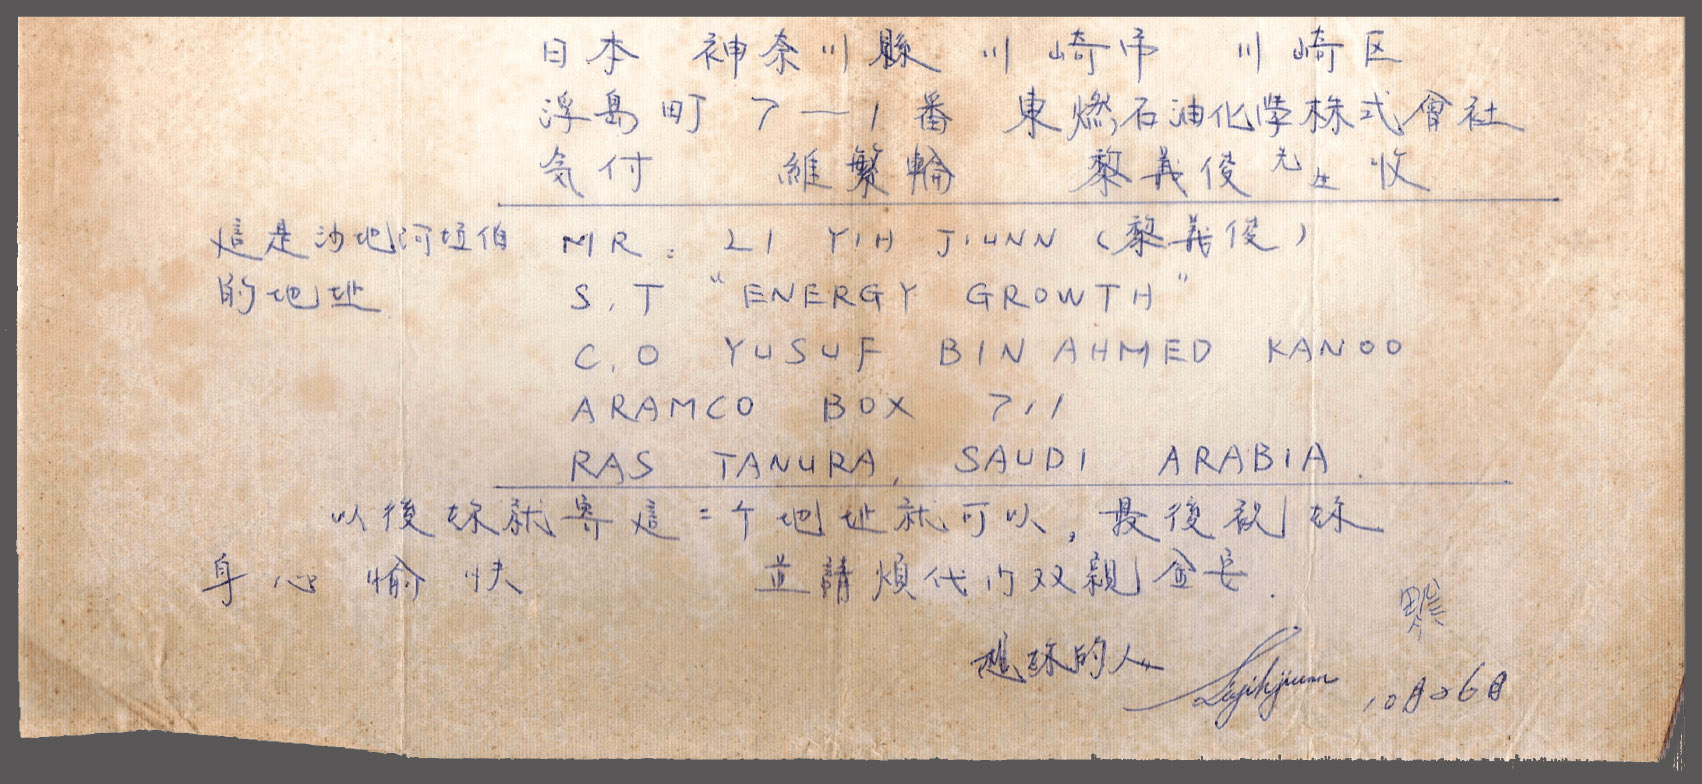 日本 神奈川縣 川崎市 川崎区
浮島町 7-1番 東燃石油化学株式會社
気付 維繁輪 黎義俊先生收
這是沙地阿拉伯 MR: LI YIH JIUNN (黎義俊)
的地址 S.T "ENERGY GROWTH"
C.O YUSUF BIN AHMED KANOO
ARAMCO BOX 711
RAS TANURA, SAUDI ARABIA.
以後妳就寄這二个地址就可以, 最後祝妳
身心愉快 並請煩代问双親金安.
想妳的人
10月26日